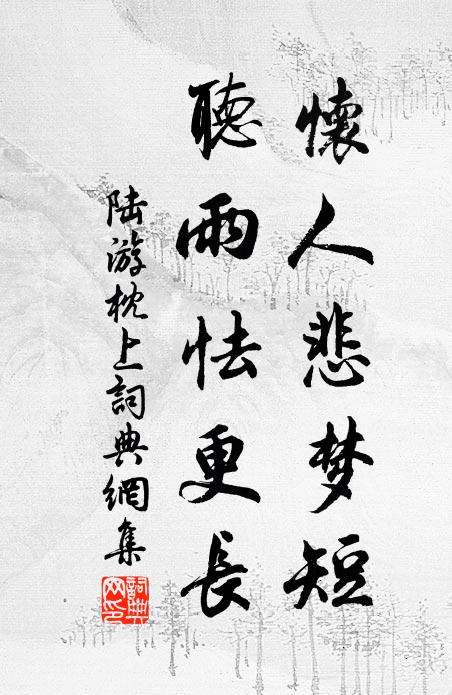 懷人悲梦短
聽雨怯更長
陆游枕上詞典網集
詞典